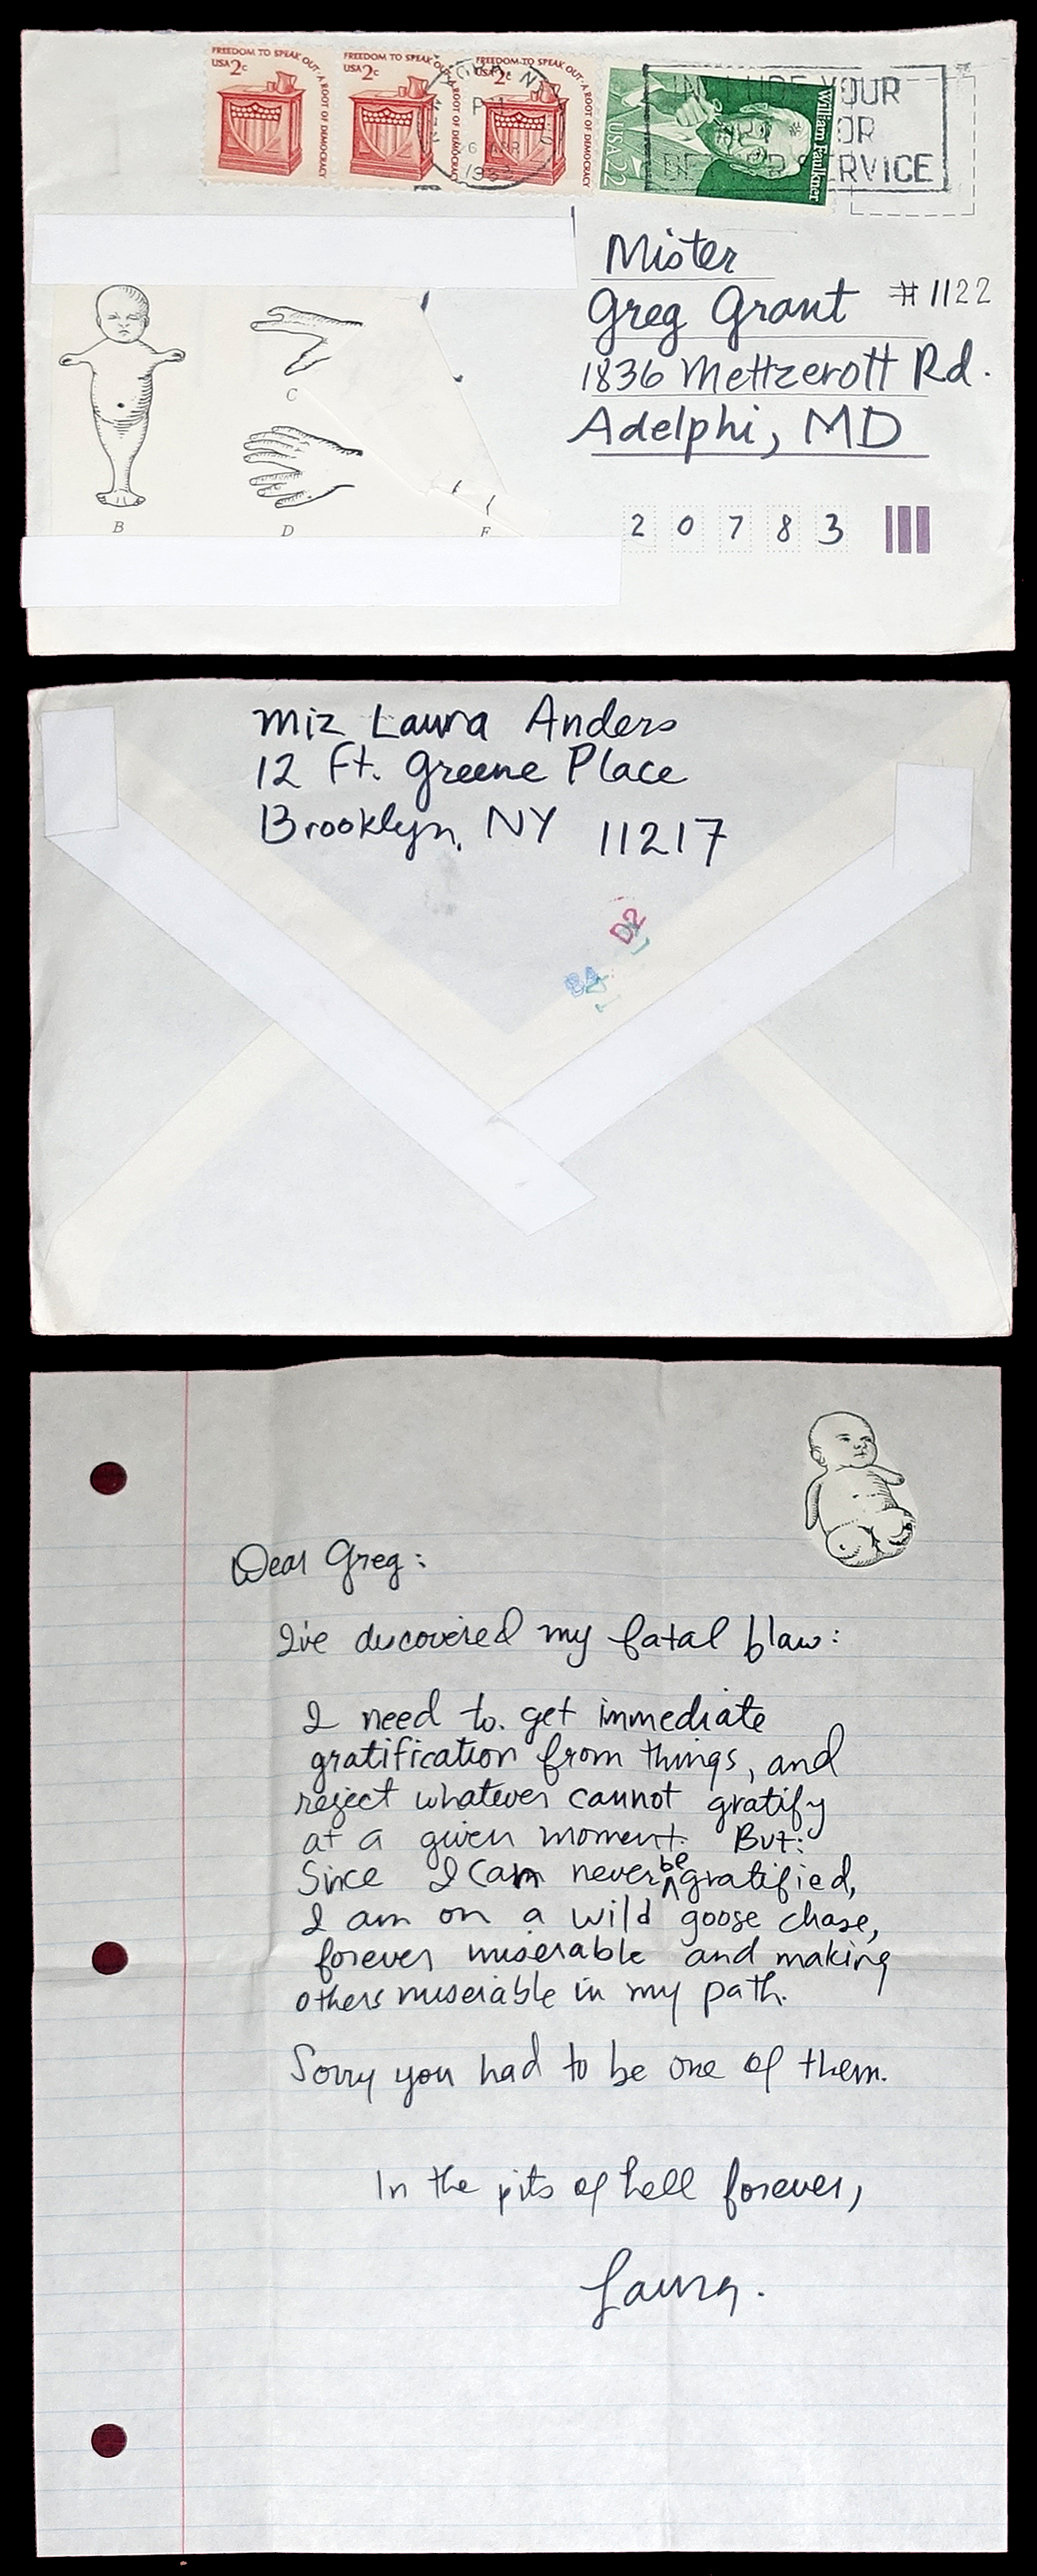 FREEDOM TO SPEAK OUT · A ROOT OF DEMOCRACY
USA 2c
FREEDOM TO SPEAK OUT · A ROOT OF DEMOCRACY
USA 2c
FREEDOM TO SPEAK OUT · A ROOT OF DEMOCRACY
USA 2c
William Faulkner
USA 22
PM
YOUR
OR
SERVICE
Mister
Greg Grant #1122
1836 Mettzerott Rd.
Adelphi, MD
20783
B
C
D
Miz Laura Anders
12 Ft. Greene Place
Brooklyn, NY 11217
D2
Dear Greg:
I've discovered my fatal flaw:
I need to get immediate
gratification from things, and
reject whatever cannot gratify
at a given moment. But:
Since I can never be gratified,
I am on a wild goose chase,
forever miserable and making
others miserable in my path.
Sorry you had to be one of them.
In the pits of hell forever,
Laura.